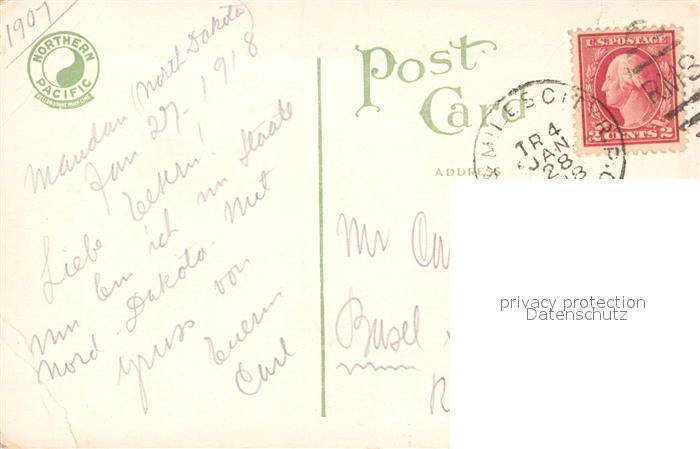 1907
NORTHERN
PACIFIC
YELLOWSTONE PARK LINE
Mandan (North Dakota)
Jan 27-1918
Liebe Eltern!
Nun bin ich im Staate
Nord-Dakota. Mit
gruss von
Euerm
Carl
Post
Card
ADDRESS
U.S. POSTAGE
2 CENTS 2
MILES CITY
TR 4
JAN
28
RMS
Mr Ca
Basel
privacy protection
Datenschutz